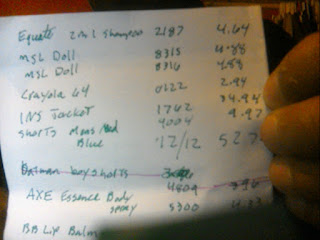 Equate 2in1 shampoo 2187 4.64
MSL Doll 8315 4.88
MSL Doll 8316 4.88
Crayola 64 0122 2.94
INS Jacket 1762 34.94
Shorts Mens Med 4004 9.97
Blue 12/12 527
Batman boy shorts
AXE Essence Body 4809 396
spray 5300
BB Lip Balm